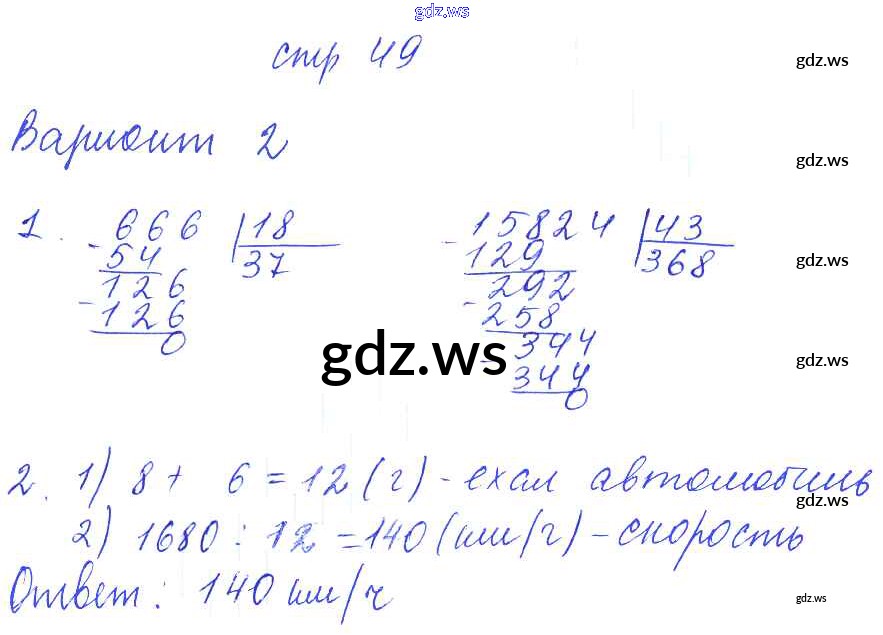 gdz.ws
стр 49
gdz.ws
Вариант 2
gdz.ws
1. 666 | 18
- 54 | 37
126
- 126
0
15824 | 43
- 129 | 368
292
- 258
344
- 344
0
gdz.ws
gdz.ws
gdz.ws
2. 1) 8 + 6 = 12 (г) - ехал автомобиль
gdz.ws
2) 1680 : 12 = 140 (км/г) - скорость
Ответ: 140 км/ч
gdz.ws